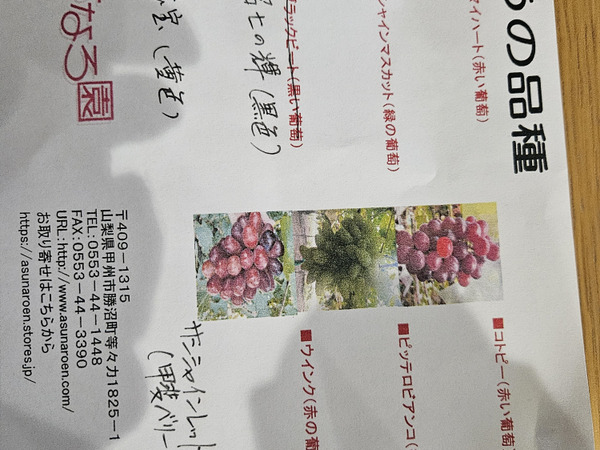 うの品種
マイハート(赤い葡萄)
シャインマスカット(緑の葡萄)
ブラックビート(黒い葡萄)
の輝(黒色)
宝(黄色)
なろ園
■コトピー(赤い葡萄
■ビッテロビアンコ(
■ウインク(赤の葡
サンシャインレッド
(甲斐ベリー
〒409-1315
山梨県甲州市勝沼町等々力1825-1
TEL:0553-44-1448
FAX:0553-44-3390
URL:http://www.asunaroen.com/
お取り寄せはこちらから
https://asunaroen.stores.jp/